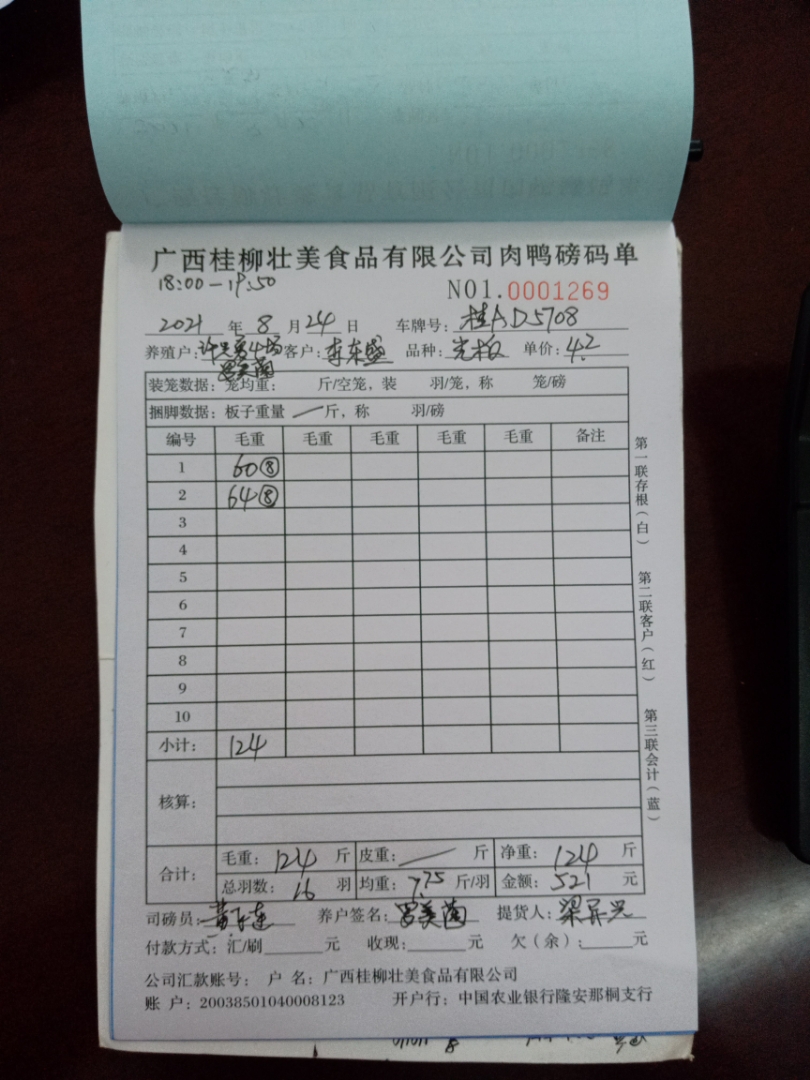 广西桂柳壮美食品有限公司肉鸭磅码单
18:00-19:50
NO1.0001269
2021 年 8 月 24 日 车牌号: 桂AD5708
养殖户: 客户: 李东盛 品种: 光板 单价: 4.2
宫美菌
装笼数据: 笼均重: 斤/空笼, 装 羽/笼, 称 笼/磅
捆脚数据: 板子重量 — 斤, 称 羽/磅
编号 毛重 毛重 毛重 毛重 毛重 备注
1 60⑧
2 64⑧
3
4
5
6
7
8
9
10
小计: 124
核算:
合计: 毛重: 124 斤 皮重: — 斤 净重: 124 斤
总羽数: 16 羽 均重: 7.75 斤/羽 金额: 521 元
司磅员: 养户签名: 宫美菌 提货人: 梁异兴
付款方式: 汇/刷 元 收现: 元 欠(余): 元
公司汇款账号: 户 名: 广西桂柳壮美食品有限公司
账 户: 20038501040008123 开户行: 中国农业银行隆安那桐支行
第一联存根(白)
第二联客户(红)
第三联会计(蓝)